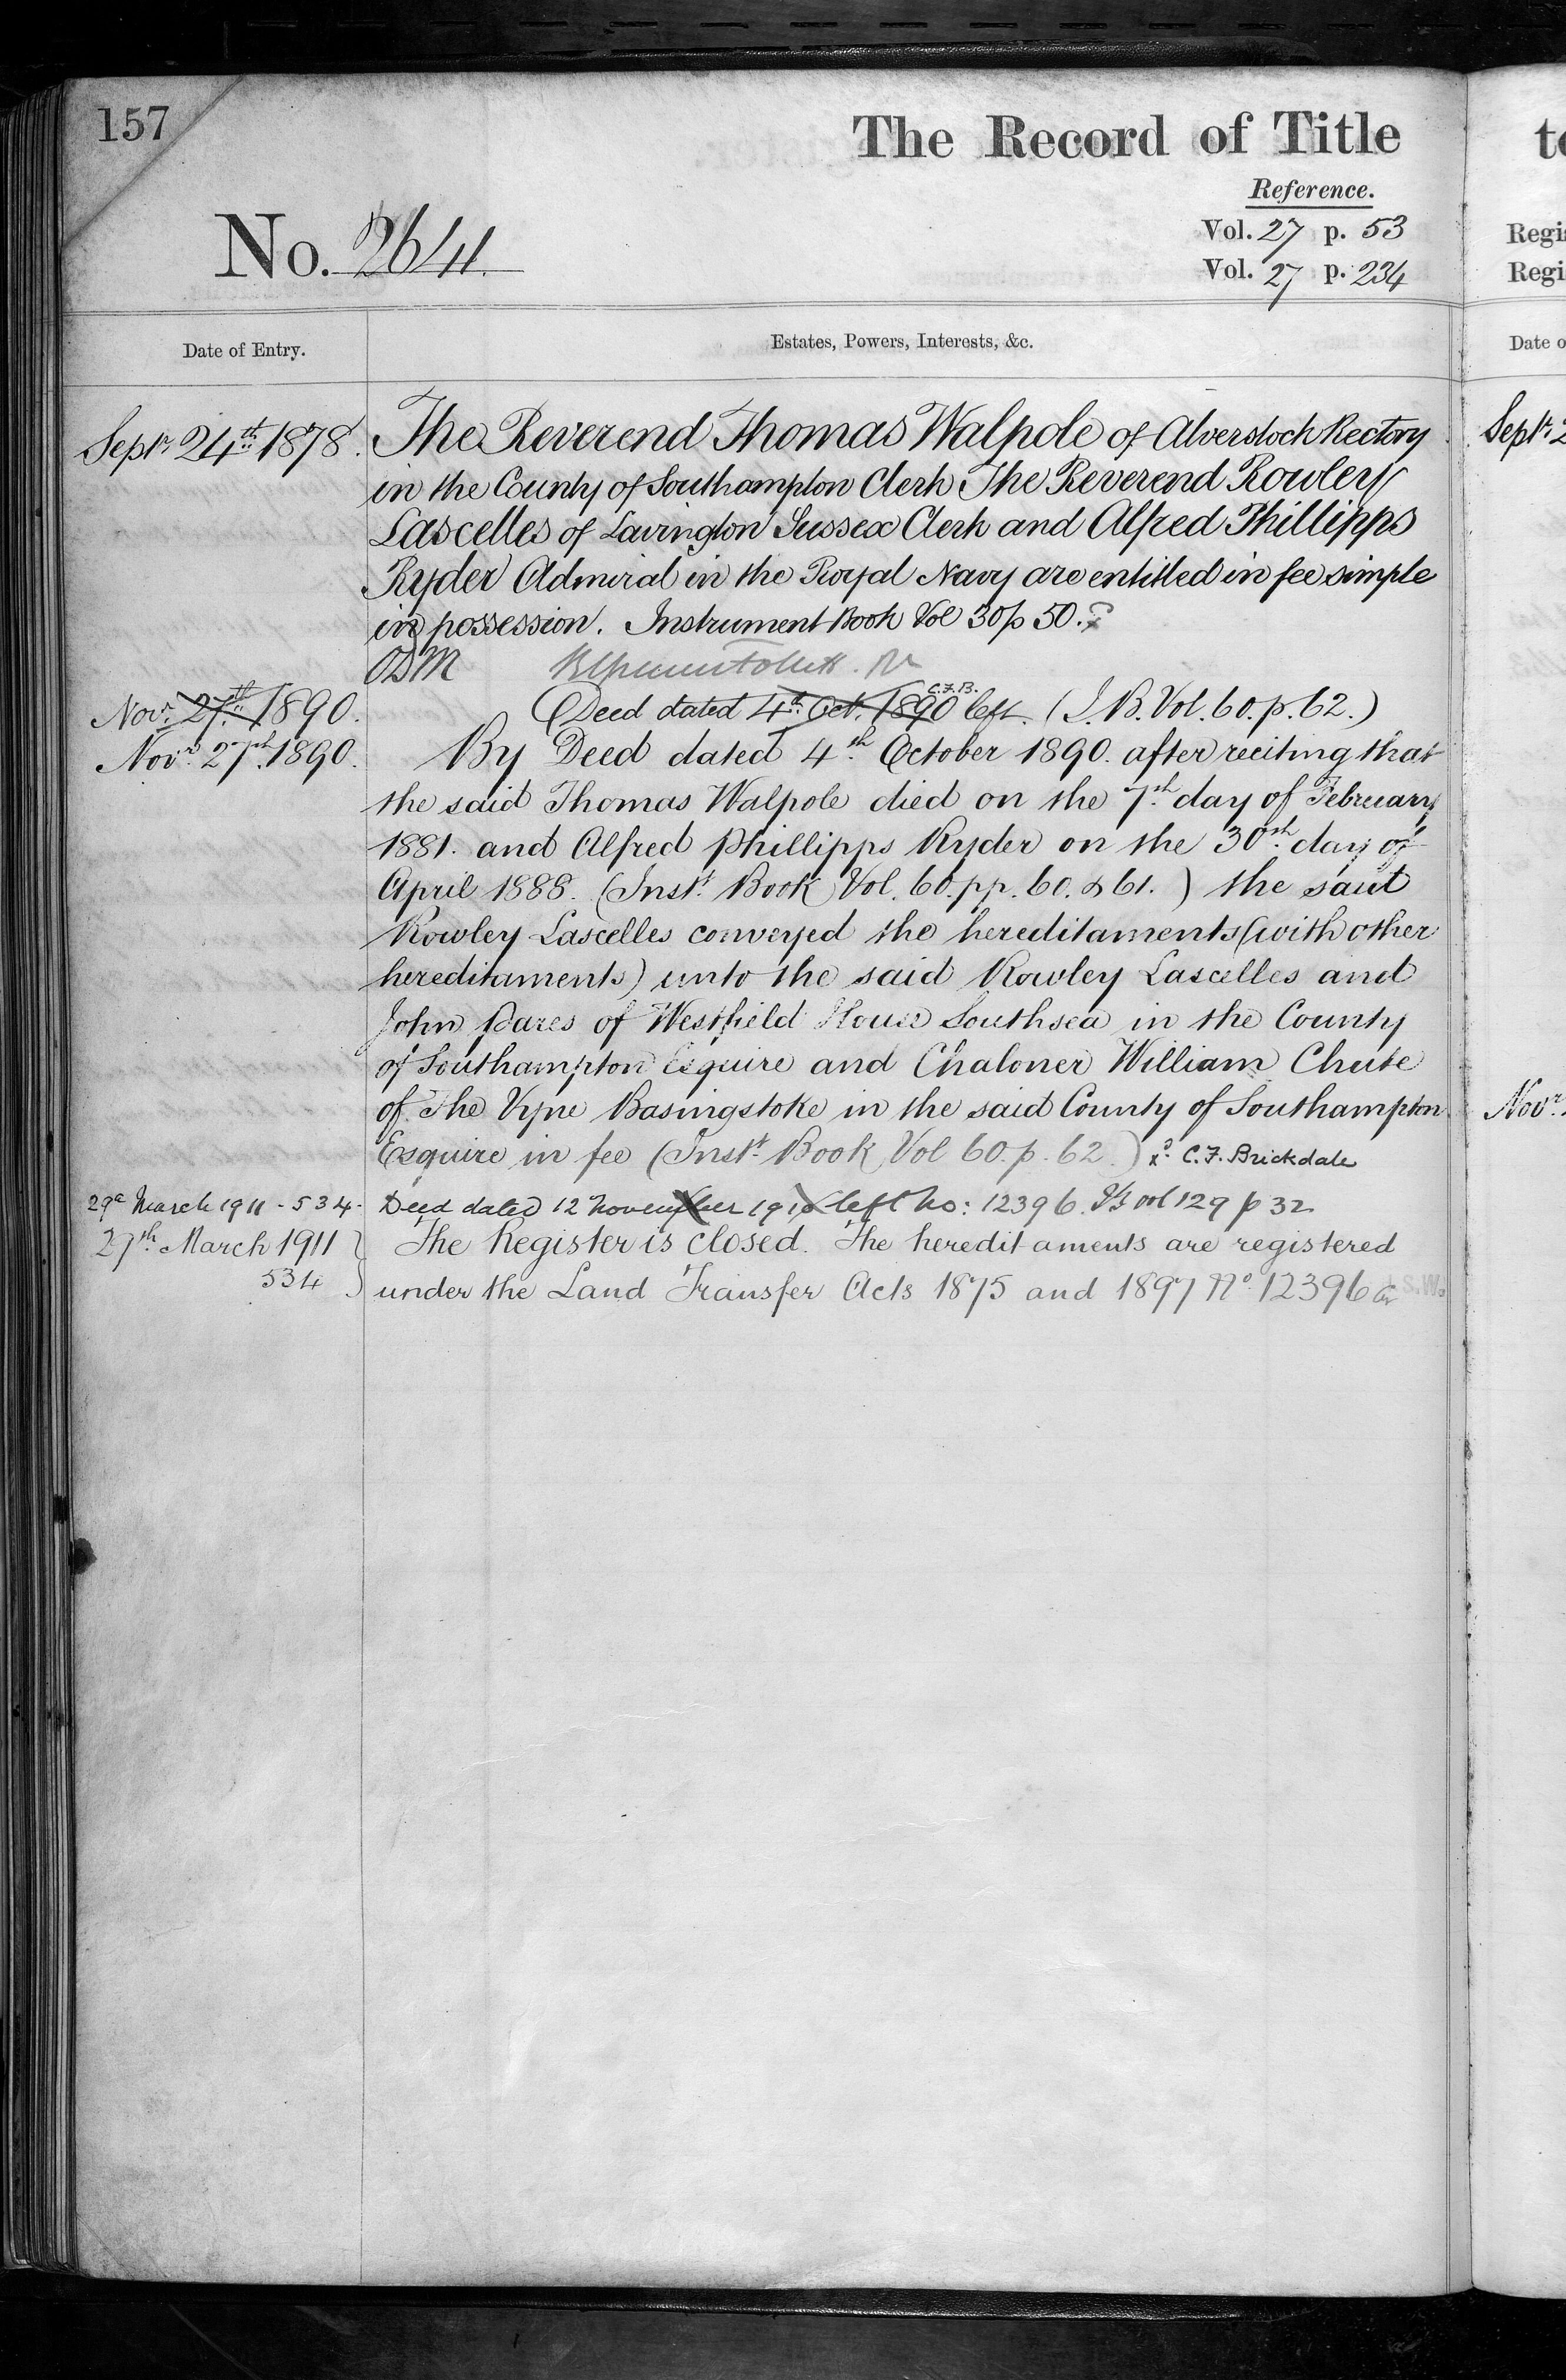 157
The Record of Title
Reference.
Vol. 27 p. 53
No. 2641.
Vol. 27 p. 234
Date of Entry.
Estates, Powers, Interests, &c.
Septr. 24th 1878. The Reverend Thomas Walpole of Alverstock Rectory
in the County of Southampton Clerk The Reverend Rowley
Lascelles of Lavington Sussex Clerk and Alfred Phillipps
Ryder Admiral in the Royal Navy are entitled in fee simple
in possession. Instrument Book Vol 30 p 50.
C.F.B.
Novr. 27th 1890. Deed dated 4th Oct. 1890 left. (I.B. Vol. 60. p. 62.)
Novr. 27th 1890. By Deed dated 4th October 1890. after reciting that
the said Thomas Walpole died on the 7th day of February
1881. and Alfred Phillipps Ryder on the 30th day of
April 1888. (Inst. Book Vol. 60. pp. 60. & 61.) the said
Rowley Lascelles conveyed the hereditaments (with other
hereditaments) unto the said Rowley Lascelles and
John Pares of Westfield House Southsea in the County
of Southampton Esquire and Chaloner William Chute
of The Vyne Basingstoke in the said County of Southampton
Esquire in fee (Inst. Book Vol 60. p. 62.) C. F. Brickdale
29a March 1911 - 534. Deed dated 12 November 1910 left No: 12396. I/B vol 129 p 32
29th March 1911 The Register is closed. The hereditaments are registered
534 under the Land Transfer Acts 1875 and 1897 No. 12396 S.W.
to
Regis
Regi
Date o
Septr. 2
Novr.